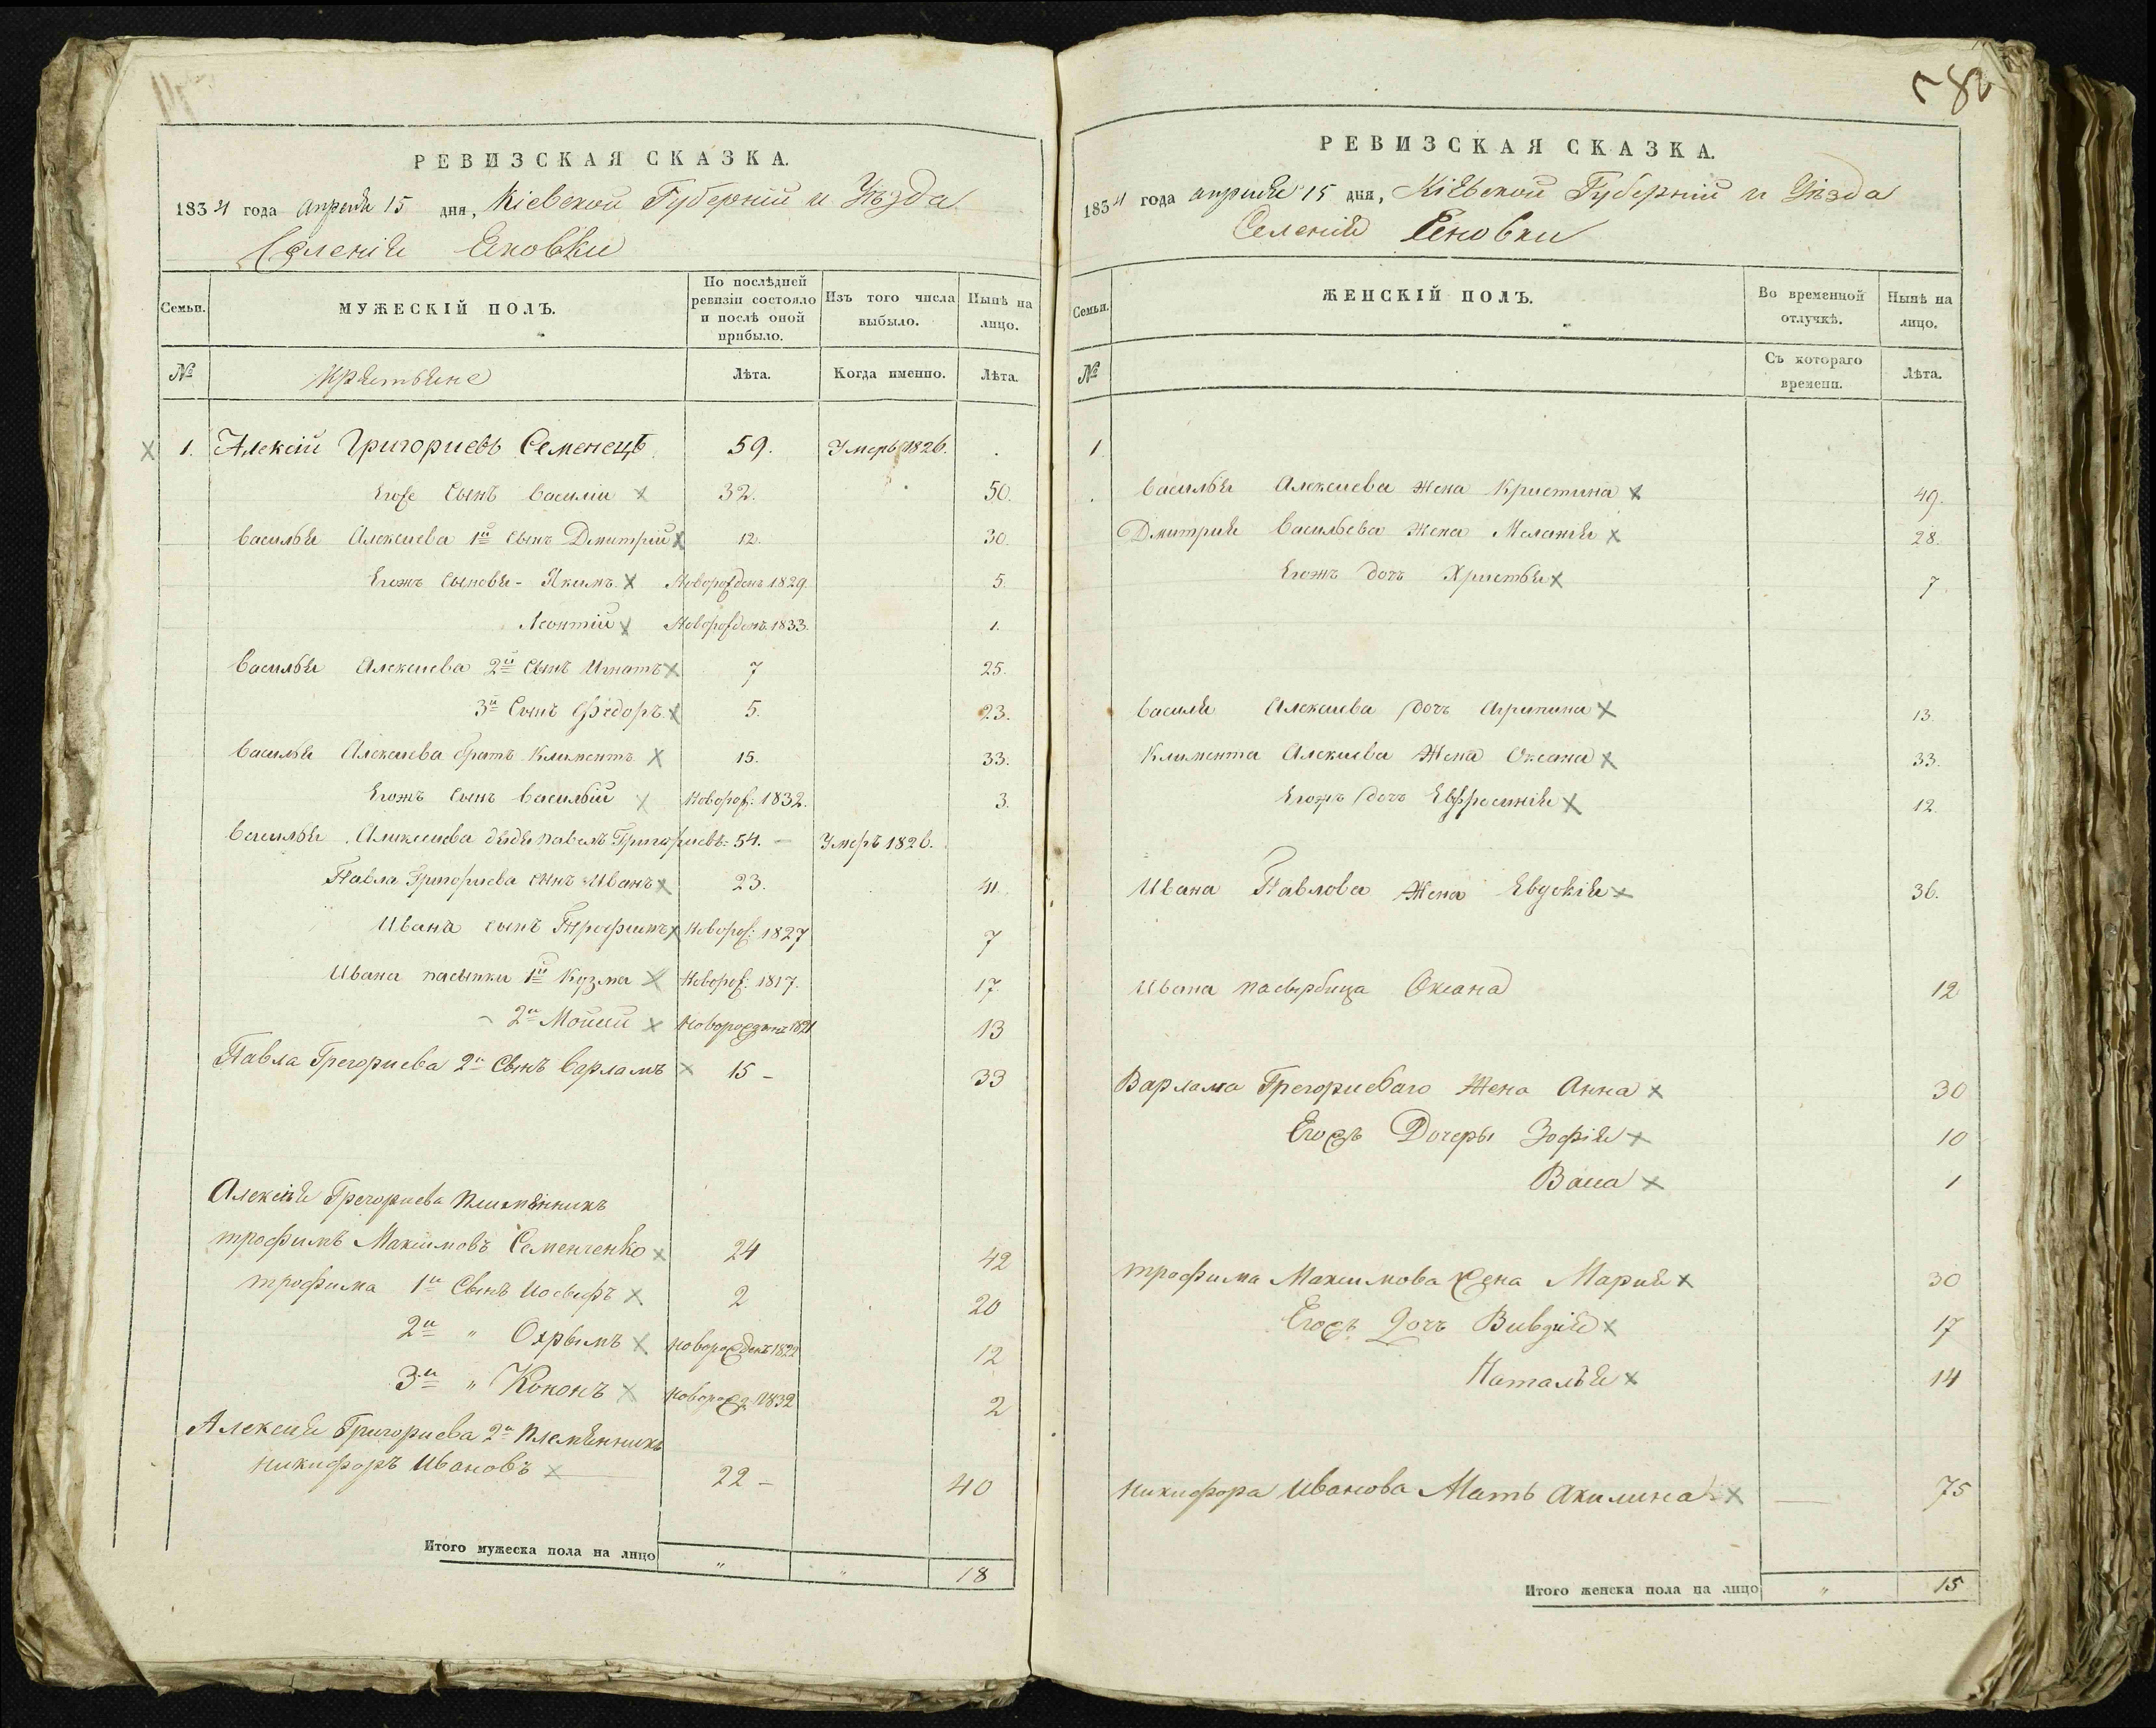 РЕВИЗСКАЯ СКАЗКА.
1834 года апреля 15 дня, Кіевской Губерніи и Уѣзда
Селенія Еновки
Семьи.
МУЖЕСКІЙ ПОЛЪ.
По послѣдней ревизіи состояло и послѣ оной прибыло.
Изъ того числа выбыло.
Нынѣ на лицо.
№
Лѣта.
Когда именно.
Лѣта.
1. Алексій Григориевъ Семенецъ 59. Умеръ 1826.
Его сынъ Василіи 32. 50.
Василья Алексиева 1й сынъ Дмитрий 12. 30.
Егожъ сыновья - Якимъ Новорожденъ 1829. 5.
Леонтій Новорожденъ 1833. 1.
Василья Алексиева 2й сынъ Игнатъ 7 25.
3й Сынъ Фёдоръ 5. 23.
Василья Алексиева братъ Климентъ 15. 33.
Егожъ сынъ Василій Новорож: 1832. 3.
Василья Алексиева дядя Павелъ Григориевъ 54. — Умеръ 1826.
Павла Григориева сынъ Иванъ 23. 41.
Ивана сынъ Трофимъ Новорож: 1827 7
Ивана пасынки 1й Кузма Новорож: 1817. 17.
2й Мойсій Новорожденъ 1821 13
Павла Грегориева 2й Сынъ Варламъ 15 - 33
Алексія Грегориева племянникъ
трофимъ Максимовъ Семенченко 24 42
трофима 1й Сынъ Иосифъ 2 20
2й " Охрымъ Новорожденъ 1822 12
3й " Кононъ Новорожд 1832 2
Алексія Григориева 2й племянникъ
никифоръ Ивановъ 22 - 40
Итого мужеска пола на лицо " " 18
РЕВИЗСКАЯ СКАЗКА.
1834 года апреля 15 дня, Кіевской Губерніи и Уѣзда
Селенія Еновки
Семьи.
ЖЕНСКІЙ ПОЛЪ.
Во временной отлучкѣ.
Нынѣ на лицо.
№
Съ котораго времени.
Лѣта.
1
Василья Алексиева жена Кристина 49.
Дмитрия Васильева жена Меланія 28.
Егожъ дочъ Христья 7
Василя Алексиева дочъ Агрипина 13.
Климента Алексиева Жена Оксана 33.
Егожъ дочъ Евфросинія 12.
Ивана Павлова Жена Евдокія 36.
Ивана пасербица Оксана 12
Варлама Грегориеваго Жена Анна 30
Егожъ Дочеры Зофія 10
Васа 1
трофима Максимова жена Мария 30
Егожъ Дочъ Вивдия 17
Наталья 14
Никифора Иванова Мать Акилина — 75
Итого женска пола на лицо " 15